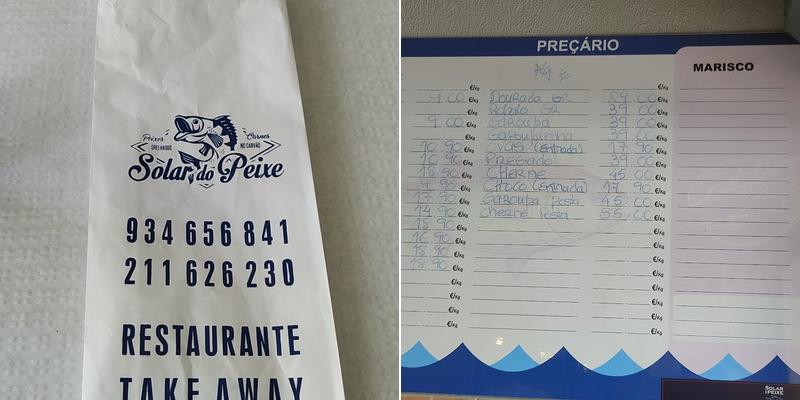 Peixes
GRELHADOS
Carnes
NO CARVÃO
Solar do Peixe
934 656 841
211 626 230
RESTAURANTE
TAKE AWAY
PREÇÁRIO
MARISCO
Kg €
9.00 €/kg Dourada GR 29 00 €/kg
Robalo GR 39 00 €/kg
9.00 €/kg Garoupa 39 00 €/kg
Garoupinha 39 00 €/kg
10 90 €/kg Ovas (Entrada) 17 90 €/kg
10 90 €/kg Pregado 39 00 €/kg
15 90 €/kg CHERNE 45 00 €/kg
9 90 €/kg CHOCO (Entrada) 17 90 €/kg
17 90 €/kg Garoupa Posta 45 00 €/kg
14 90 €/kg Cherne Posta 55 00 €/kg
18 90 €/kg €/kg
16 90 €/kg €/kg
18 90 €/kg €/kg
18 90 €/kg €/kg
€/kg €/kg
€/kg €/kg
€/kg €/kg
SOLAR
DO PEIXE